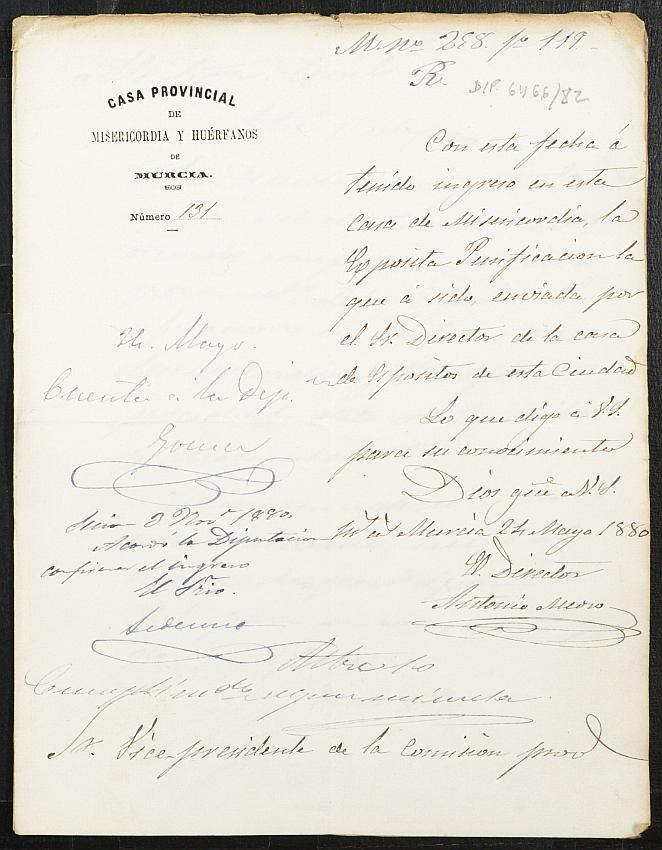 M. Nº 258. fº 119
Rº
DIP. 6466/82
CASA PROVINCIAL
DE
MISERICORDIA Y HUÉRFANOS
DE
MURCIA.
Número 131
Con esta fecha á
tenido ingreso en esta
Casa de Misericordia, la
Esposita Purificacion la
que á sido, enviada por
el Sr. Director de la casa
de Espositos de esta Ciudad
Lo que digo á V.S.
para su conocimiento
Dios gue á V.S.
Murcia 24 Mayo 1880
El Director
Antonio
24. Mayo.
Cuenta á la Dip.
Gomez
3 Nov 1880.
Acordó la Diputacion
confirmar el ingreso
El Srio.
Ledesma
Sr. Vice-presidente de la Comision prov